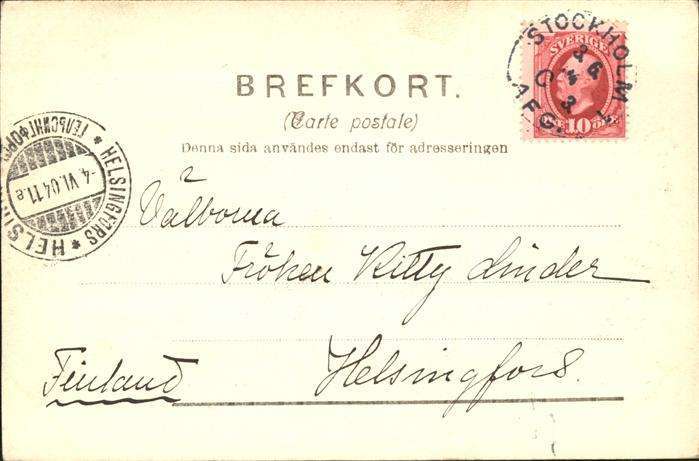 BREFKORT.
(Carte postale)
Denna sida användes endast för adresseringen
STOCKHOLM
AFG.
SVERIGE
10 ÖRE
HELSINGFORS * HELSINGFORS * ГЕЛЬСИНГФОРСЪ
-4.VI.04.11.e
Välborna
Fröken Kitty Linder
Helsingfors.
Finland